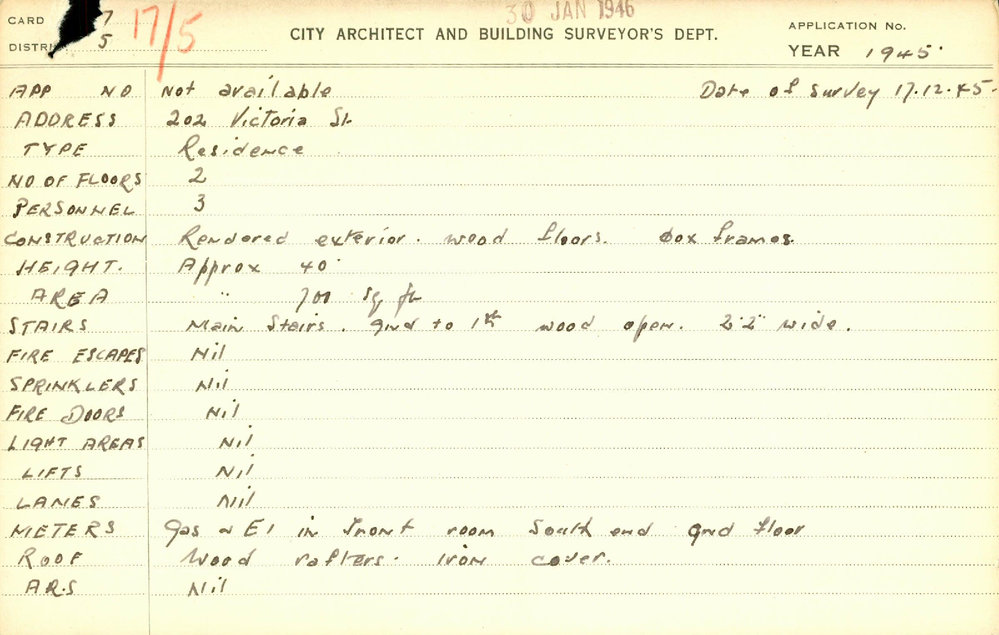 30 JAN 1946
CARD 7 17/5 CITY ARCHITECT AND BUILDING SURVEYOR'S DEPT. APPLICATION No.
DISTRI 5 YEAR 1945
APP NO Not available Date of Survey 17.12.45.
ADDRESS 202 Victoria St.
TYPE Residence
NO OF FLOORS 2
PERSONNEL 3
CONSTRUCTION Rendered exterior. wood floors. Box frames.
HEIGHT. Approx 40'
AREA " 700 Sq ft
STAIRS Main Stairs. Gnd to 1st wood open. 2'2" wide.
FIRE ESCAPES Nil
SPRINKLERS Nil
FIRE DOORS Nil
LIGHT AREAS Nil
LIFTS Nil
LANES Nil
METERS Gas & El in front room South end Gnd floor
ROOF Wood rafters. Iron cover.
A.R.S Nil